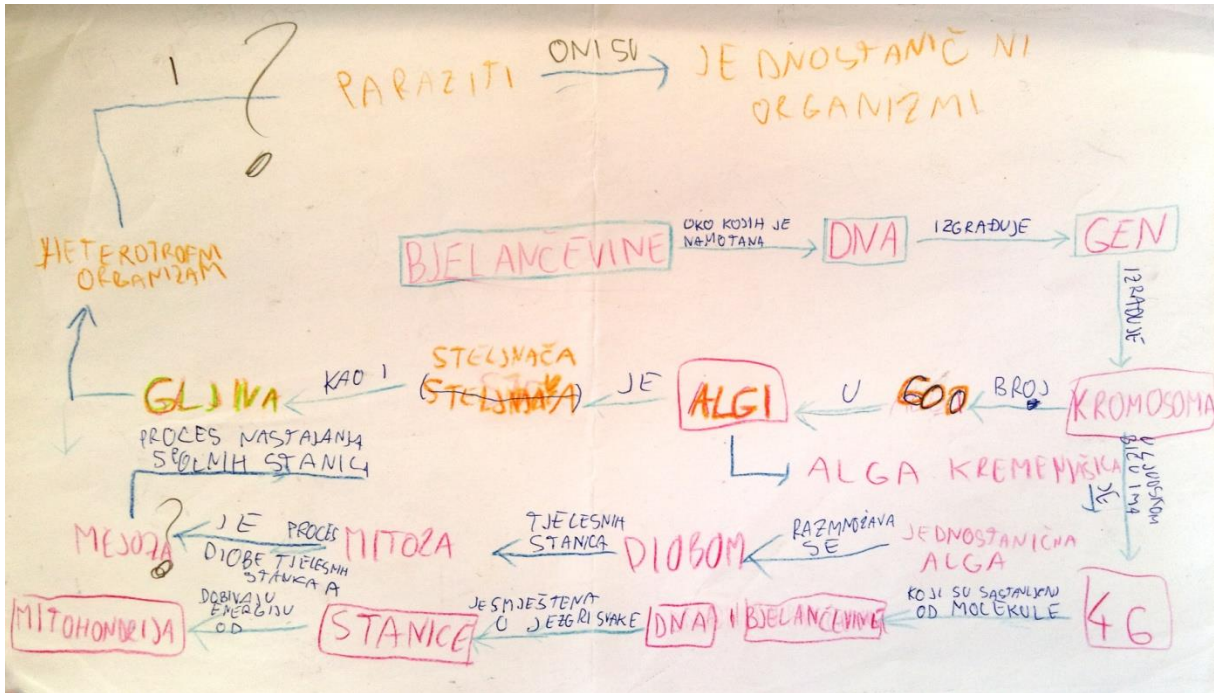 I ? PARAZITI ONI SU JEDNOSTANIČNI
ORGANIZMI
HETEROTROFNI
ORGANIZAM
BJELANČEVINE OKO KOJIH JE
NAMOTANA DNA IZGRAĐUJE GEN
IZGRAĐUJE
STELJNAČA
GLJIVA KAO I JE ALGI U 600 BROJ KROMOSOMA
PROCES NASTAJANJA
SPOLNIH STANICA
ALGA KREMENJAŠICA
JE
U LJUDSKOM
BIĆU IMA
MEJOZA ? JE PROCES
DIOBE TJELESNIH
STANICA A MITOZA TJELESNIH
STANICA DIOBOM RAZMNOŽAVA
SE JEDNOSTANIČNA
ALGA
MITOHONDRIJA DOBIVAJU
ENERGIJU
OD STANICE JE SMJEŠTENA
U JEZGRI SVAKE DNA I BJELANČEVINE KOJI SU SASTAVLJENI
OD MOLEKULE 46